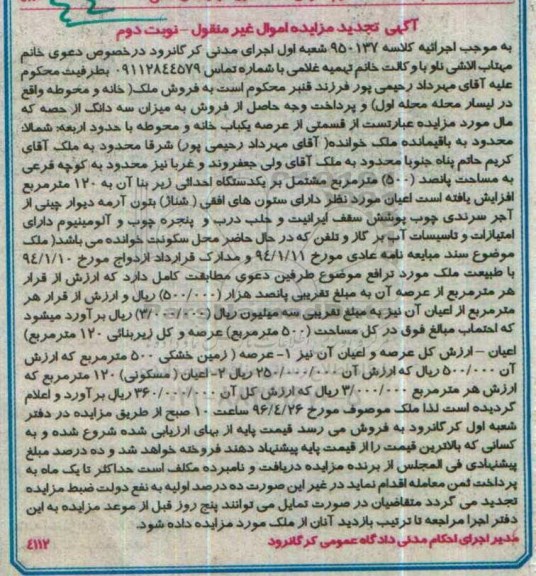 آگهی تجدید مزایده اموال غیر منقول - نوبت دوم
به موجب اجرائیه کلاسه ۹۵۰۱۳۷ شعبه اول اجرای مدنی کرگانرود درخصوص دعوی خانم
مهتاب الاشی ناو با وکالت خانم تهمیه غلامی با شماره تماس ۰۹۱۱۲۸۴۴۵۷۹ بطرفیت محکوم
علیه آقای مهرداد رحیمی پور فرزند قنبر محکوم است به فروش ملک( خانه و محوطه واقع
در لیسار محله محله اول) و پرداخت وجه حاصل از فروش به میزان سه دانگ از حصه که
مال مورد مزایده عبارتست از قسمتی از عرصه یکباب خانه و محوطه با حدود اربعه: شمالا:
محدود به باقیمانده ملک خوانده( آقای مهرداد رحیمی پور) شرقا محدود به ملک آقای
کریم حاتم پناه جنوبا محدود به ملک آقای ولی جعفروند و غربا نیز محدود به کوچه فرعی
به مساحت پانصد (۵۰۰) مترمربع مشتمل بر یکدستگاه احداثی زیر بنا آن به ۱۲۰ مترمربع
افزایش یافته است اعیان مورد نظر دارای ستون های افقی ( شناژ) بتون آرمه دیوار چینی از
آجر سرندی چوب پوشش سقف ایرانیت و حلب درب و پنجره چوب و آلومینیوم دارای
امتیازات و تاسیسات آب بر گاز و تلفن که در حال حاضر محل سکونت خوانده می باشد( ملک
موضوع سند مبایعه نامه عادی مورخ ۹۴/۱/۱۱ و مدارک قرارداد ازدواج مورخ ۹۴/۱/۱۰
با طبیعت ملک مورد ترافع موضوع طرفین دعوی مطابقت کامل دارد که ارزش از قرار
هر مترمربع از عرصه آن به مبلغ تقریبی پانصد هزار (۵۰۰/۰۰۰) ریال و ارزش از قرار هر
مترمربع از اعیان آن نیز به مبلغ تقریبی سه میلیون ریال (۳/۰۰۰/۰۰۰) ریال برآورد میشود
که احتساب مبالغ فوق در کل مساحت (۵۰۰ مترمربع) عرصه و کل زیربنائی ۱۲۰ مترمربع)
اعیان – ارزش کل عرصه و اعیان آن نیز ۱- عرصه ( زمین خشکی ۵۰۰ مترمربع که ارزش
آن ۵۰۰/۰۰۰ ریال که ارزش آن ۲۵۰/۰۰۰/۰۰۰ ریال ۲- اعیان ( مسکونی) ۱۲۰ مترمربع که
ارزش هر مترمربع ۳/۰۰۰/۰۰۰ ریال که ارزش کل آن ۳۶۰/۰۰۰/۰۰۰ ریال برآورد و اعلام
گردیده است لذا ملک موصوف مورخ ۹۶/۴/۲۶ ساعت ۱۰ صبح از طریق مزایده در دفتر
شعبه اول کرگانرود به فروش می رسد قیمت پایه از بهای ارزیابی شده شروع شده و به
کسانی که بالاترین قیمت را از قیمت پایه پیشنهاد دهند فروخته خواهد شد و ده درصد مبلغ
پیشنهادی فی المجلس از برنده مزایده دریافت و نامبرده مکلف است حداکثر تا یک ماه به
پرداخت ثمن معامله اقدام نماید در غیر این صورت ده درصد اولیه به نفع دولت ضبط مزایده
تجدید می گردد متقاضیان در صورت تمایل می توانند پنج روز قبل از موعد مزایده به این
دفتر اجرا مراجعه تا ترتیب بازدید آنان از ملک مورد مزایده داده شود.
مدیر اجرای احکام مدنی دادگاه عمومی کرگانرود ۴۱۱۲